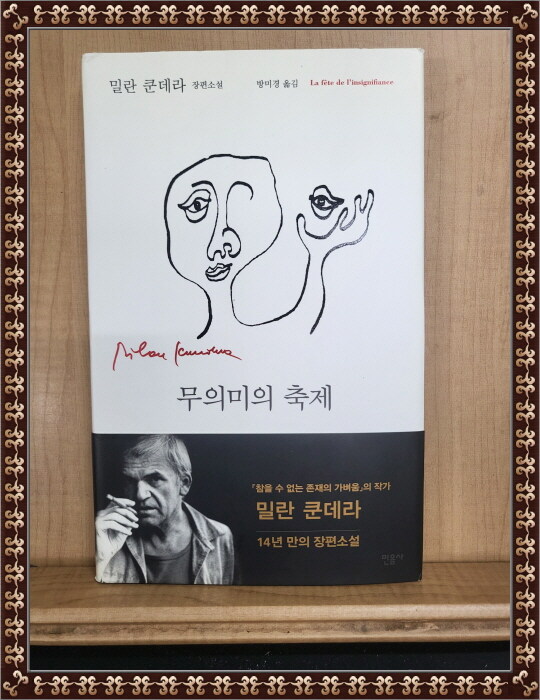 밀란 쿤데라 장편소설 방미경 옮김 La fête de l'insignifiance
Milan Kundera
무의미의 축제
『참을 수 없는 존재의 가벼움』의 작가
밀란 쿤데라
14년 만의 장편소설
민음사